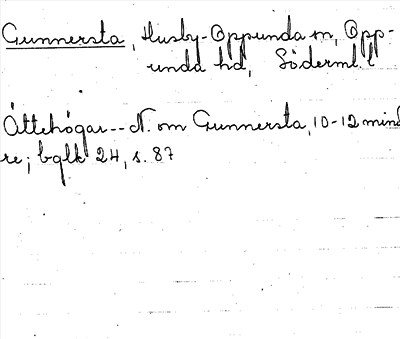 Gunnersta, Husby-Oppunda sn, Opp-
unda hd, Söderml. l
Ättehögar -- N. om Gunnersta, 10-12 mind
re; bglk 24, s. 87